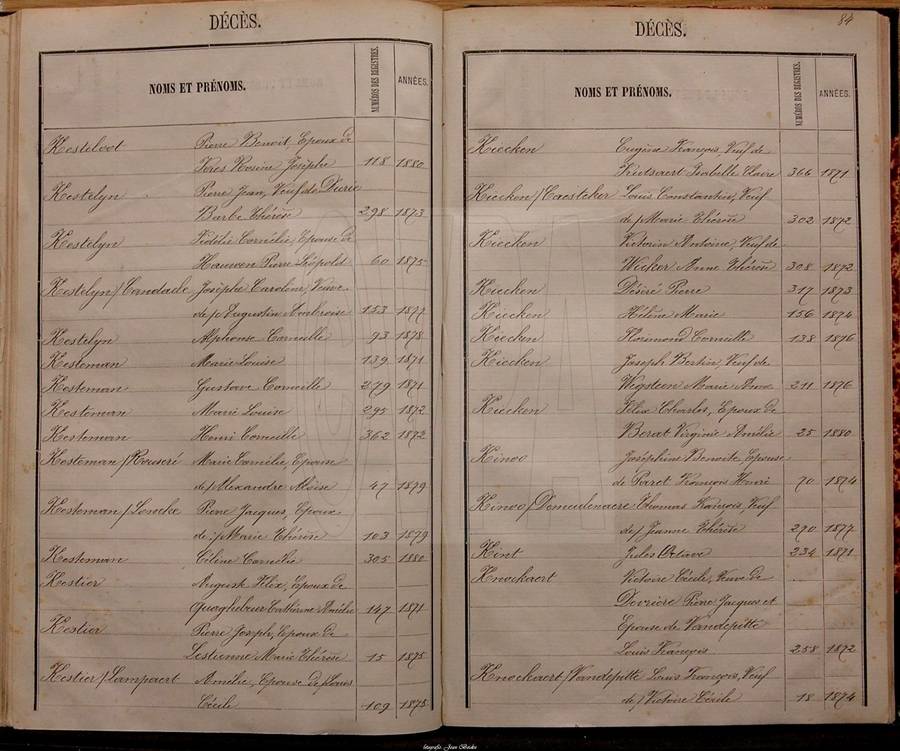 DÉCÈS.
NOMS ET PRÉNOMS. NUMÉROS DES REGISTRES. ANNÉES.
Kesteloot Pierre Benoit, Epoux de
Rosine Josèphe 118 1880
Kestelyn Pierre Jean, Veuf de
Barbe Thérèse 298 1873
Kestelyn Cornélie, Epouse de
Hauwen Pierre Léopold 60 1875
Kestelyn/Candaele Josèphe Caroline, Veuve
de/Augustin Ambroise 153 1877
Kestelyn Alphonse Corneille 93 1878
Kesteman Marie Louise 139 1871
Kesteman Gustave Corneille 279 1871
Kesteman Marie Louise 295 1872
Kesteman Henri Corneille 362 1872
Kesteman/Rouseré Marie Cornélie, Epouse
de/Alexandre Aloïse 47 1879
Kesteman/ Pierre Jacques, Epoux
de/Marie Thérèse 103 1879
Kesteman Céline Cornélie 305 1880
Kestier August Félix, Epoux de
Queghebeur Catherine Amélie 147 1871
Kestier Pierre Joseph, Epoux de
Lestienne Marie Thérèse 15 1875
Kestier/Lampaert Amélie, Epouse de/Louis
Cécile 109 1875
84
DÉCÈS.
NOMS ET PRÉNOMS. NUMÉROS DES REGISTRES. ANNÉES.
Kiecken Eugène François, Veuf de
Isabelle Claire 366 1871
Kiecken/Caesteker Louis Constantin, Veuf
de/Marie Thérèse 302 1872
Kiecken Victorin Antoine, Veuf de
Wicker Anne Thérèse 308 1872
Kiecken Désiré Pierre 317 1873
Kiecken Hélène Marie 156 1874
Kiecken Florimond Corneille 138 1876
Kiecken Joseph Bertin, Veuf de
Wegsteen Marie Anne 211 1876
Kiecken Félix Charles, Epoux de
Berat Virginie Amélie 25 1880
Kinoo Joséphine Benoite, Epouse
de Paret François Henri 70 1874
Kinoo/Demeulenaere Thomas François, Veuf
de/Jeanne Thérèse 270 1877
Kint Jules Octave 234 1871
Knockaert Victoire Cécile, Veuve de
Devriere Pierre Jacques et
Epouse de Vandepitte
Louis François 258 1872
Knockaert/Vandepitte Louis François, Veuf
de/Victoire Cécile 18 1874
fotografie Jean Becks